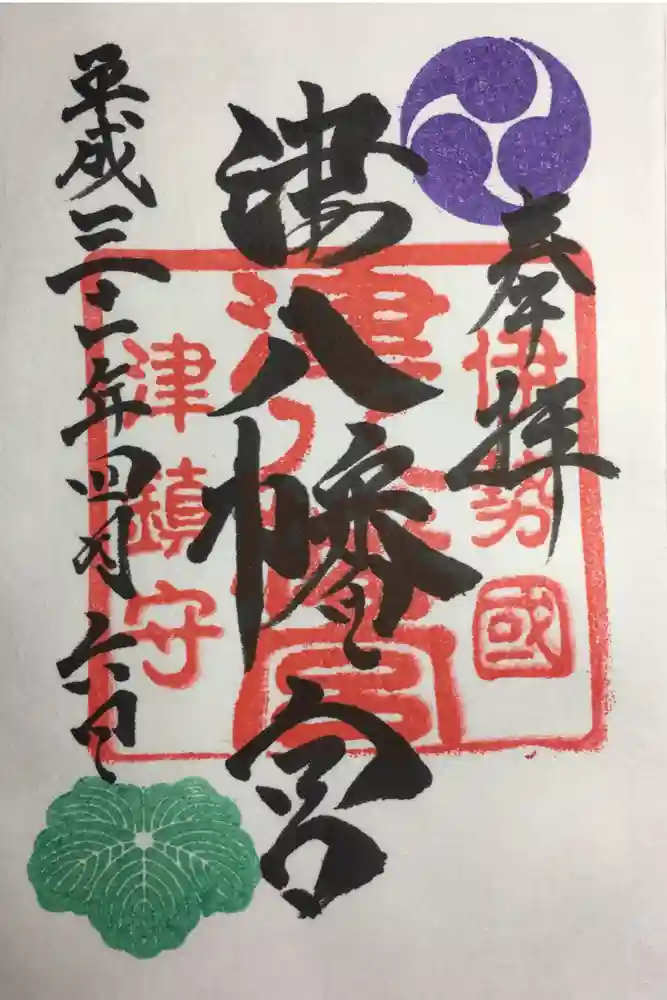 奉拝
津八幡宮
平成三十一年四月六日
伊勢國
津八幡宮
津鎮守